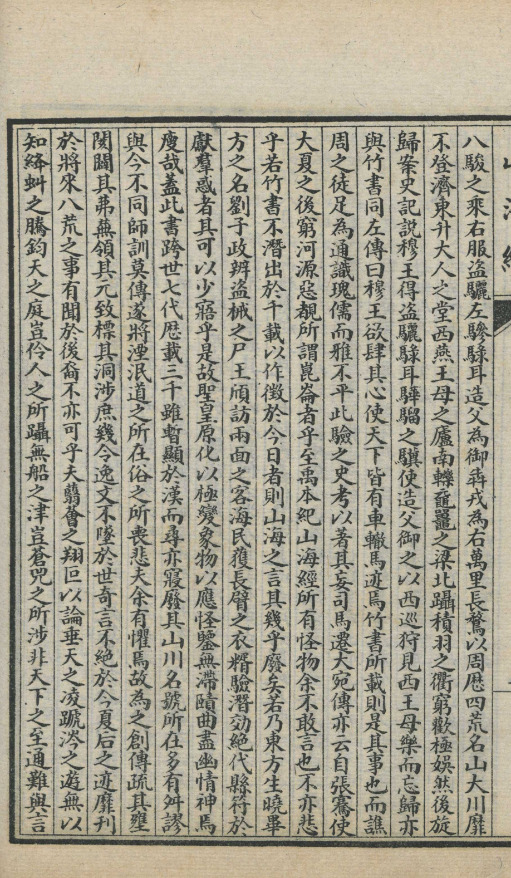 山海經
八駿之乘右服盜驪左驂騄耳造父為御犇戎為右萬里長騖以周歷四荒名山大川靡
不登濟東升大人之堂西燕王母之廬南轢黿鼉之梁北躡積羽之衢窮歡極娛然後旋
歸案史記說穆王得盜驪騄耳驊騮之驥使造父御之以西巡狩見西王母樂而忘歸亦
與竹書同左傳曰穆王欲肆其心使天下皆有車轍馬迹焉竹書所載則是其事也而譙
周之徒足為通識瑰儒而雅不平此驗之史考以著其妄司馬遷大宛傳亦云自張騫使
大夏之後窮河源惡覩所謂崑崙者乎至禹本紀山海經所有怪物余不敢言也不亦悲
乎若竹書不潛出於千載以作徵於今日者則山海之言其幾乎廢矣若乃東方生曉畢
方之名劉子政辨盜械之尸王頎訪兩面之客海民獲長臂之衣精驗潛効絕代縣符於
戲羣惑者其可以少寤乎是故聖皇原化以極變象物以應怪鑒無滯賾曲盡幽情神焉
廋哉蓋此書跨世七代歷載三千雖暫顯於漢而尋亦寢廢其山川名號所在多有舛謬
與今不同師訓莫傳遂將湮泯道之所在俗之所喪悲夫余有懼焉故為之創傳疏其壅
閡闢其茀蕪領其元致標其洞涉庶幾令逸文不墜於世奇言不絕於今夏后之迹靡刊
於將來八荒之事有聞於後裔不亦可乎夫蘙薈之翔叵以論垂天之凌蹏涔之遊無以
知絳虯之騰鈞天之庭豈伶人之所躡無船之津豈蒼兕之所涉非天下之至通難與言